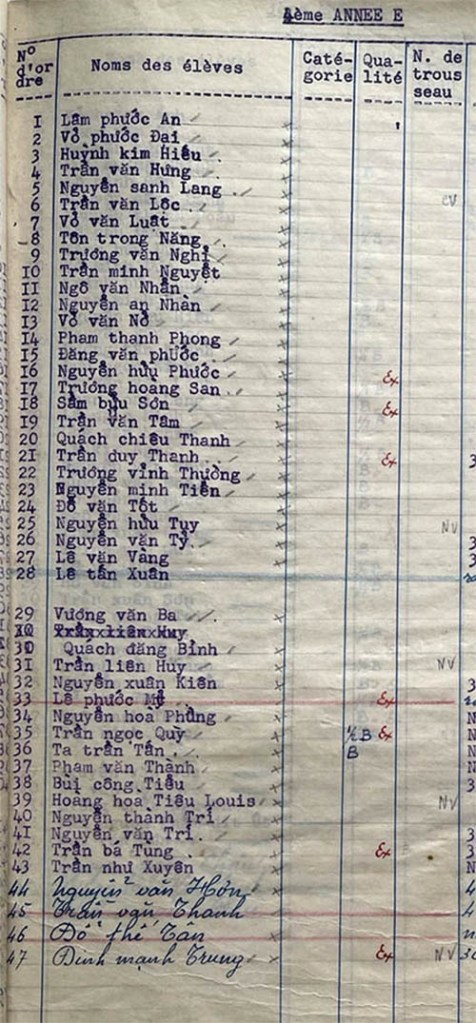 4ème ANNEE E
N° d'or dre Noms des élèves Caté- gorie Qua- lité N. de trous seau
1 Lâm phước An
2 Võ phước Đai
3 Huỳnh kim Hiếu
4 Trần văn Hưng
5 Nguyễn sanh Lang CV
6 Trần văn Lôc
7 Võ văn Luât
8 Tôn trong Năng
9 Trương văn Nghị
10 Trần minh Nguyệt
11 Ngô văn Nhân
12 Nguyễn an Nhàn
13 Võ văn Nở
14 Pham thanh Phong
15 Đăng văn phước
16 Nguyễn hữu Phước
17 Trương hoang San Ex
18 Sầm bửu Sơn Ex
19 Trần văn Tâm
20 Quách chiêu Thanh
21 Trần duy Thanh Ex 3
22 Trương vĩnh Thưởng
23 Nguyễn minh Tiên
24 Đỗ văn Tốt
25 Nguyễn hữu Tuy NV
26 Nguyễn văn Tỷ 3
27 Lê văn Vàng 3
28 Lê tấn Xuân
29 Vương văn Ba
30 Trần liên Huy
30 Quách đăng Bỉnh
31 Trần liên Huy NV
32 Nguyễn xuân Kiên 3
33 Lê phước Mỹ Ex
34 Nguyễn hoa Phùng N
35 Trần ngọc Quý ½ B Ex N
36 Ta trần Tấn B N
37 Pham văn Thành N
38 Bùi công Tiếu 3
39 Hoàng hoa Tiêu Louis NV
40 Nguyễn thành Trí
41 Nguyễn văn Trí 3
42 Trần bá Tùng Ex 3
43 Trần như Xuyên N
44 Nguyễn văn Hớn 4
45 Trần văn Thanh 4
46 Đỗ thế Tân
47 Đinh mạnh Trung Ex NV 30